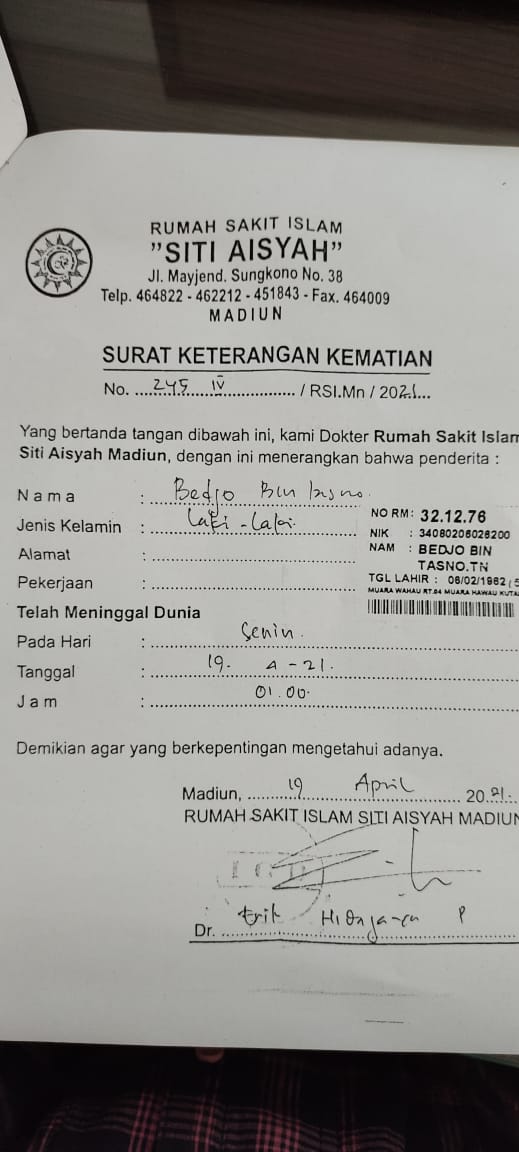 RUMAH SAKIT ISLAM
"SITI AISYAH"
Jl. Mayjend. Sungkono No. 38
Telp. 464822 - 462212 - 451843 - Fax. 464009
MADIUN
SURAT KETERANGAN KEMATIAN
No. 245 IV / RSI.Mn / 2021
Yang bertanda tangan dibawah ini, kami Dokter Rumah Sakit Islam
Siti Aisyah Madiun, dengan ini menerangkan bahwa penderita :
Nama : Bedjo Bin
Jenis Kelamin : Laki-Laki
Alamat :
Pekerjaan :
NO RM : 32.12.76
NIK : 34080206028200
NAM : BEDJO BIN
TASNO.TN
TGL LAHIR : 06/02/1982 (5
MUARA WAHAU RT.04 MUARA WAHAU KUTA
Telah Meninggal Dunia
Pada Hari : Senin.
Tanggal : 19. 4-21.
Jam : 01.00.
Demikian agar yang berkepentingan mengetahui adanya.
Madiun, 19 April 2021.
RUMAH SAKIT ISLAM SITI AISYAH MADIUN
Dr. Erik P